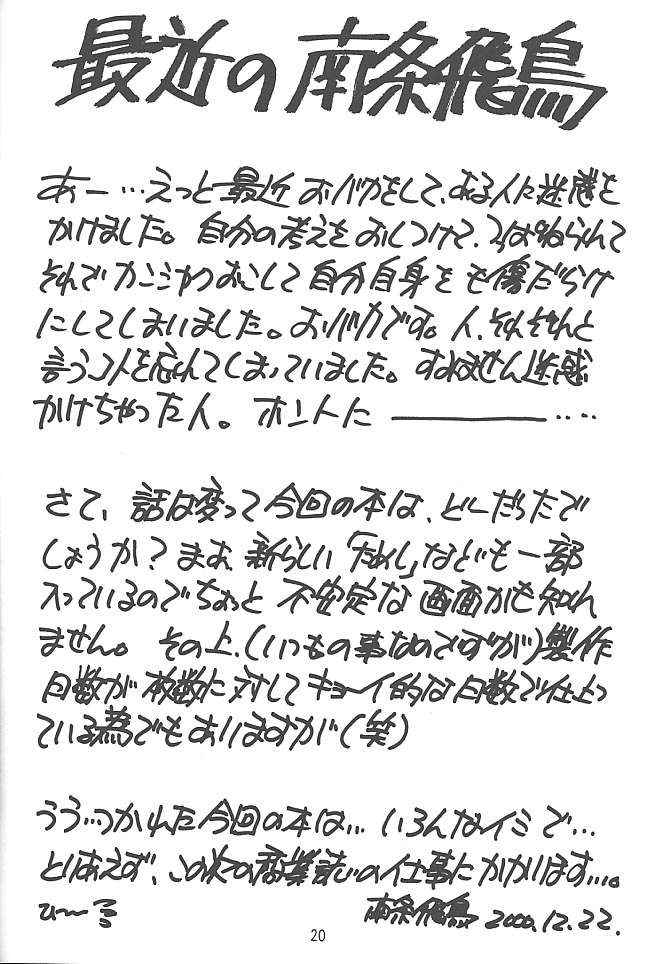 最近の南条飛鳥
あー…えっと最近おバカをして、ある人に迷惑を
かけました。自分の考えをおしつけて、つっぱねられて
それでカンシャクおこして自分自身をも傷だらけ
にしてしまいました。おバカです。人、それぞれと
言うコトを忘れてしまっていました。すみません迷惑
かけちゃった人。ホントに――――‥‥
さて、話は変って今回の本は、どーだったで
しょうか?まぁ、新らしい「ためし」なども一部
入っているのでちょっと不安定な画面かも知れ
ません。その上、(いつもの事なのですが)製作
日数が枚数に対してキョーイ的な日数で仕上っ
ている為でもありますが(笑)
うう…つかれた今回の本は…いろんなイミで…
とりあえず、この次の商業誌の仕事にかかります…。
ひ〜る
南条飛鳥 2000.12.22.
20